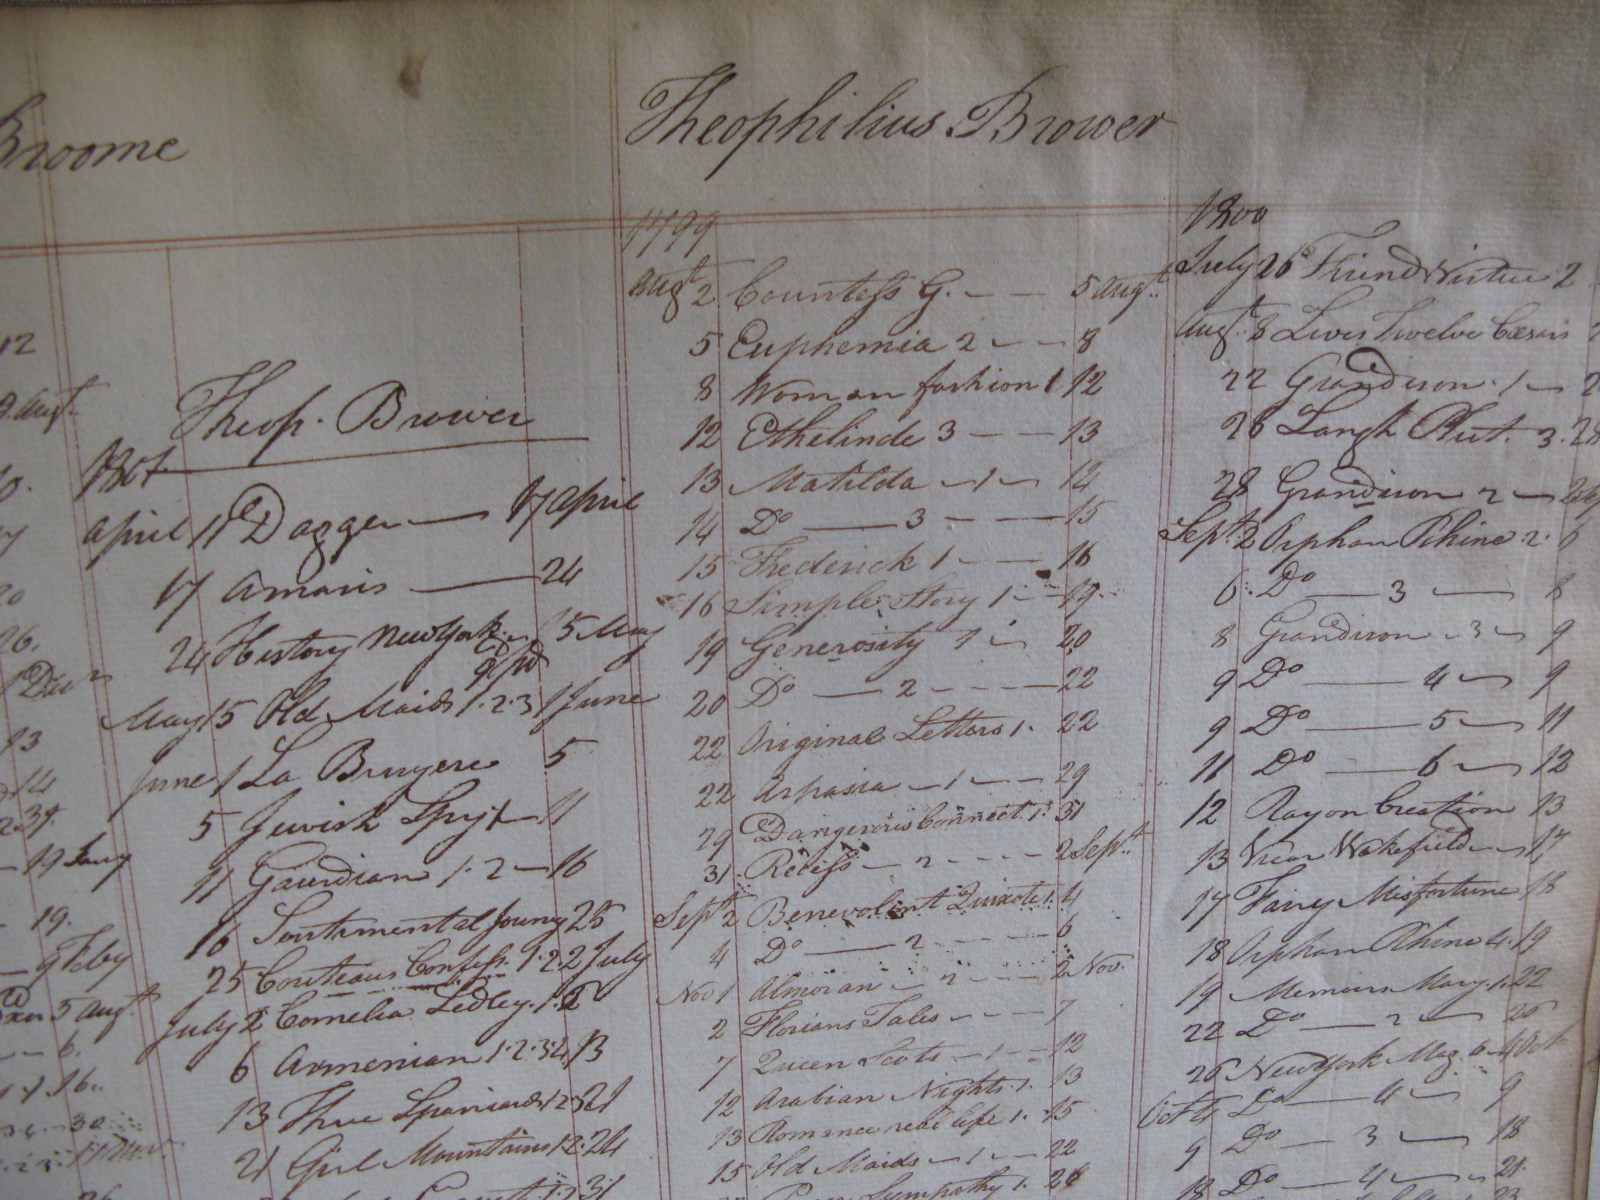 Broome
12
9. Augt
10.
26.
13
14
19 Jany
19.
9 Feby
5 Augt
6.
16.
30
Theop. Brower
1801
April 11 Dagger — 17 April
17 Amaris — 24
24 History New York 15 May
May 15 Old Maids 1.2.3 1 June
June 1 La Bruyere 5
5 Jewish Spy 1 — 11
11 Gaurdian 1.2 — 16
16 Sentimental Journy 25
25 Confess. 1.2 2 July
July 2 Cornelia Sedley 1.2
6 Armenian 1.2.3.4 13
13 Three Spaniards 1 2 3 21
21 Girl Mountains 1.2. 24
31
Theophilius Brower
1799
Augt 2 Countess G. — — 5 Augt.
5 Euphemia 2 — — 8
8 Woman fashion 1 12
12 Ethelinde 3 — — 13
13 Matilda — 1 — 14
14 Do — 3 — — 15
15 Frederick 1 — — 16
16 Simple Story 1 — 19
19 Generosity 1 — 20
20 Do — 2 — — 22
22 Original Letters 1. 22
22 Aspasia — 1 — — 29
29 Dangerous Connect. 1. 31
31 Recess — 2 — — 2 Sept.
Sept 2 Benevolent Quixote 1. 4
4 Do — 2 — — 6
Nov 1 Almoran — 2 — — 2 Nov.
2 Florians Tales — — 7
7 Queen Scots — 1 — 12
12 Arabian Nights 1. 13
13 Romance real life 1. 15
15 Old Maids — 1 — 22
Sympathy 1. 28
1800
July 26 Friend Virtue 2
Augt. 8 Lives Twelve Cæsars
22 Grandison 1 —
26 Langh Plut. 3. 28
28 Grandison 2 —
Sept. 2 Orphan Rhine 2. 6
6. Do — 3 — 8
8 Grandison — 3 — 9
9 Do — 4 — 9
9 Do — 5 — 11
11 Do — 6 — 12
12 Ray on Creation 13
13 Vicar Wakefield — 17
17 Fairy Misfortune 18
18 Orphan Rhine 4. 19
19 Memoirs Mary. 1. 22
22 Do — 2 — 26
26 New York Mag. 6 — 4 Oct
Oct 4 Do — 4 — 9
9 Do — 3 — 18
18 Do — 4 — 21.